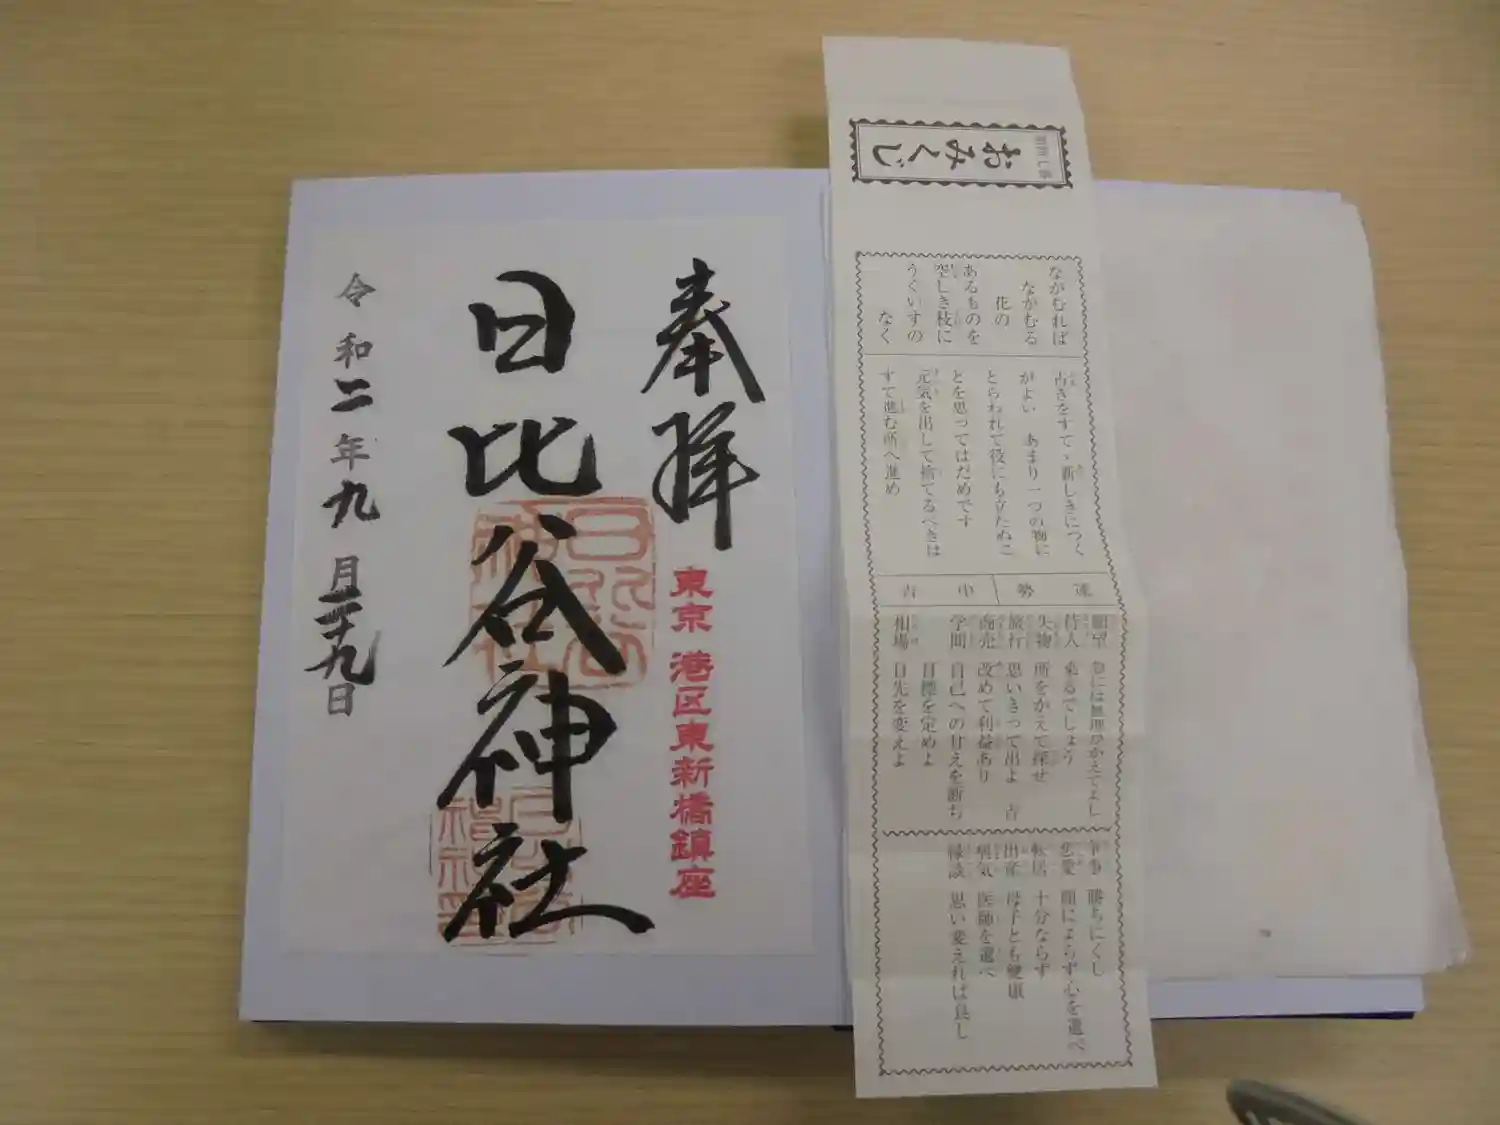 奉拝
東京 港区東新橋鎮座
日比谷神社
令和二年九月二十九日
おみくじ
ながむれば
ながむる
花の
あるものを
空しき枝に
うぐいすの
なく
古きをすて、新しきにつく
がよい あまり一つの物に
とらわれて役にも立たぬこ
とを思ってはだめです
元気を出して捨てるべきは
すて進む所へ進め
運勢 中吉
願望 急には無理歩かえてよし
待人 来るでしょう
失物 所をかえて探せ
旅行 思いきって出よ 吉
商売 改めて利益あり
学問 自己への甘えを断ち
目標を定めよ
相場 目先を変えよ
争事 勝ちにくし
恋愛 顔によらず心を選べ
転居 十分ならず
出産 母子とも健康
病気 医師を選べ
縁談 思い変えれば良し